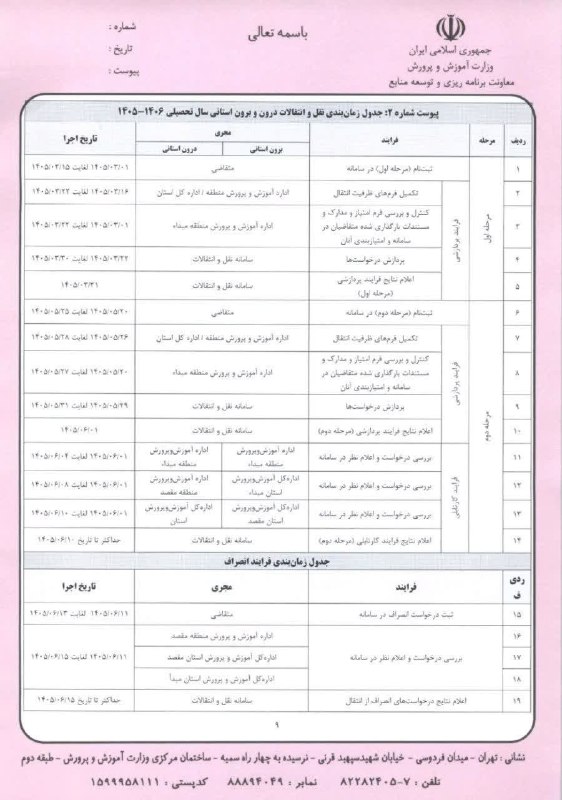 باسمه تعالی
جمهوری اسلامی ایران
وزارت آموزش و پرورش
معاونت برنامه ریزی و توسعه منابع
شماره :
تاریخ :
پیوست :
پیوست شماره ۲: جدول زمان‌بندی نقل و انتقالات درون و برون استانی سال تحصیلی ۱۴۰۶-۱۴۰۵
ردیف مرحله فرایند مجری تاریخ اجرا
برون استانی درون استانی
مرحله اول
فرایند پردازشی
۱ ثبت‌نام (مرحله اول) در سامانه متقاضی ۱۴۰۵/۰۳/۰۱ لغایت ۱۴۰۵/۰۳/۱۵
۲ تکمیل فرم‌های ظرفیت انتقال اداره آموزش و پرورش منطقه / اداره کل استان ۱۴۰۵/۰۳/۱۶ لغایت ۱۴۰۵/۰۳/۲۲
۳ کنترل و بررسی فرم امتیاز و مدارک و
مستندات بارگذاری شده متقاضیان در
سامانه و امتیازبندی آنان اداره آموزش و پرورش منطقه مبداء ۱۴۰۵/۰۳/۰۱ لغایت ۱۴۰۵/۰۳/۲۲
۴ پردازش درخواست‌ها سامانه نقل و انتقالات ۱۴۰۵/۰۳/۲۲ لغایت ۱۴۰۵/۰۳/۳۰
۵ اعلام نتایج فرایند پردازشی
(مرحله اول) سامانه نقل و انتقالات ۱۴۰۵/۰۳/۳۱
مرحله دوم
۶ ثبت‌نام (مرحله دوم) در سامانه متقاضی ۱۴۰۵/۰۵/۲۰ لغایت ۱۴۰۵/۰۵/۲۵
فرایند پردازشی
۷ تکمیل فرم‌های ظرفیت انتقال اداره آموزش و پرورش منطقه / اداره کل استان ۱۴۰۵/۰۵/۲۶ لغایت ۱۴۰۵/۰۵/۲۸
۸ کنترل و بررسی فرم امتیاز و مدارک و
مستندات بارگذاری شده متقاضیان در
سامانه و امتیازبندی آنان اداره آموزش و پرورش منطقه مبداء ۱۴۰۵/۰۵/۲۰ لغایت ۱۴۰۵/۰۵/۲۷
۹ پردازش درخواست‌ها سامانه نقل و انتقالات ۱۴۰۵/۰۵/۲۹ لغایت ۱۴۰۵/۰۵/۳۱
۱۰ اعلام نتایج فرایند پردازشی (مرحله دوم) سامانه نقل و انتقالات ۱۴۰۵/۰۶/۰۱
فرایند کارتابلی
۱۱ بررسی درخواست و اعلام نظر در سامانه اداره آموزش‌وپرورش منطقه مبداء اداره آموزش‌وپرورش منطقه مبداء ۱۴۰۵/۰۶/۰۱ لغایت ۱۴۰۵/۰۶/۰۴
۱۲ بررسی درخواست و اعلام نظر در سامانه اداره‌کل آموزش‌وپرورش استان مبداء اداره آموزش‌وپرورش منطقه مقصد ۱۴۰۵/۰۶/۰۱ لغایت ۱۴۰۵/۰۶/۰۸
۱۳ بررسی درخواست و اعلام نظر در سامانه اداره‌کل آموزش‌وپرورش استان مقصد اداره‌کل آموزش‌وپرورش استان ۱۴۰۵/۰۶/۰۱ لغایت ۱۴۰۵/۰۶/۱۰
۱۴ اعلام نتایج فرایند کارتابلی (مرحله دوم) سامانه نقل و انتقالات حداکثر تا تاریخ ۱۴۰۵/۰۶/۱۰
جدول زمان‌بندی فرایند انصراف
ردیف فرایند مجری تاریخ اجرا
۱۵ ثبت درخواست انصراف در سامانه متقاضی ۱۴۰۵/۰۶/۱۱ لغایت ۱۴۰۵/۰۶/۱۳
۱۶ اداره آموزش و پرورش منطقه مقصد
۱۷ بررسی درخواست و اعلام نظر در سامانه اداره‌کل آموزش و پرورش استان مقصد ۱۴۰۵/۰۶/۱۱ لغایت ۱۴۰۵/۰۶/۱۵
۱۸ اداره‌کل آموزش و پرورش استان مبدأ
۱۹ اعلام نتایج درخواست‌های انصراف از انتقال سامانه نقل و انتقالات حداکثر تا تاریخ ۱۴۰۵/۰۶/۱۵
۹
نشانی : تهران - میدان فردوسی - خیابان شهیدسپهبد قرنی - نرسیده به چهار راه سمیه - ساختمان مرکزی وزارت آموزش و پرورش - طبقه دوم
تلفن : ۷-۸۲۲۸۲۴۰۵ نمابر : ۸۸۸۹۴۰۴۹ کدپستی : ۱۵۹۹۹۵۸۱۱۱